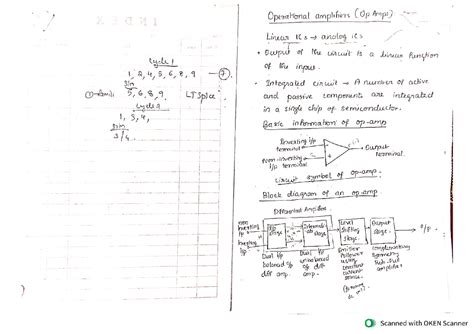 INDEX
Cycle 1
1, 2, 4, 5, 6, 8, 9 — 7.
Sim
5, 6, 8, 9. LTSpice
Cycle 2
1, 3, 4,
Sim
3/4.
Operational amplifiers (Op Amps)
Linear ICs → analog ICs
• Output of the circuit is a linear function
of the input.
• Integrated circuit → A number of active
and passive component are integrated
in a single chip of semiconductor.
Basic information of op-amp
Inverting i/p
terminal
Output
terminal.
Non-inverting
i/p
terminal
Circuit symbol of op-amp.
Block diagram of an op-amp
Differential Amplifiers
non
inverting
i/p
inverting
i/p
i/p
stage
stage
level
shifting
stage
Output
stage.
o/p
Dual i/p
balanced o/p
diff amp.
Dual i/p
unbalanced
o/p diff
amp.
Emitter
follower
using
constant
current
source.
Complementary
symmetry
Push-Pull
amplifier
Scanned with OKEN Scanner